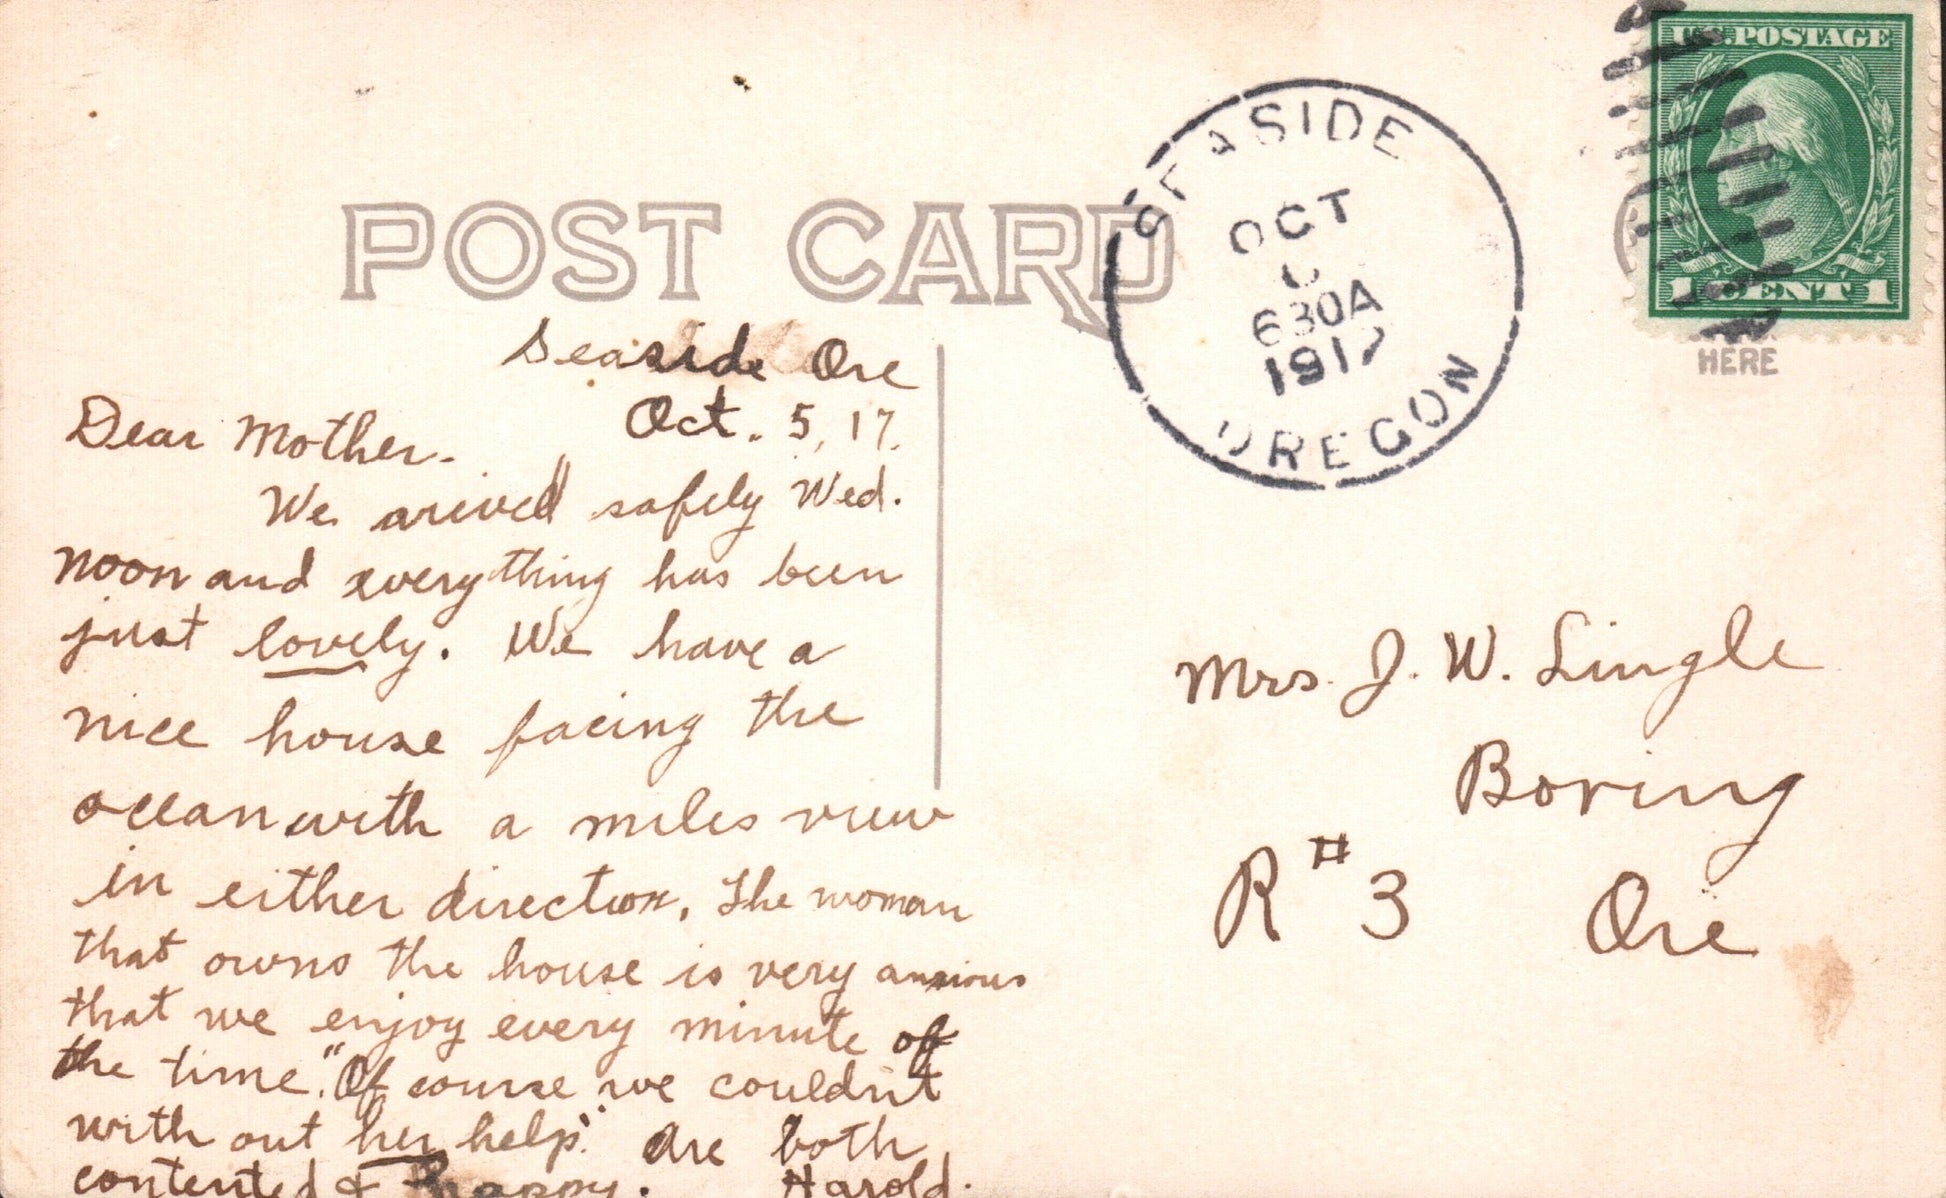 U.S. POSTAGE
1 CENT 1
HERE
POST CARD
SEASIDE
OCT
630A
1917
OREGON
Seaside Ore
Oct. 5, 17.
Dear Mother.
We arived safely Wed.
noon and everything has been
just lovely. We have a
nice house facing the
ocean with a miles view
in either direction. The woman
that owns the house is very anxious
that we enjoy every minute of
the time. "Of course we couldn't
with out her help". Are both
contented & happy. Harold.
Mrs. J. W. Lingle
Boring
R # 3 Ore